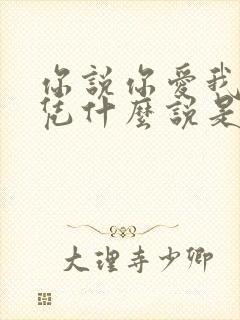 你說你愛我
憑什麼說是
大理寺少卿